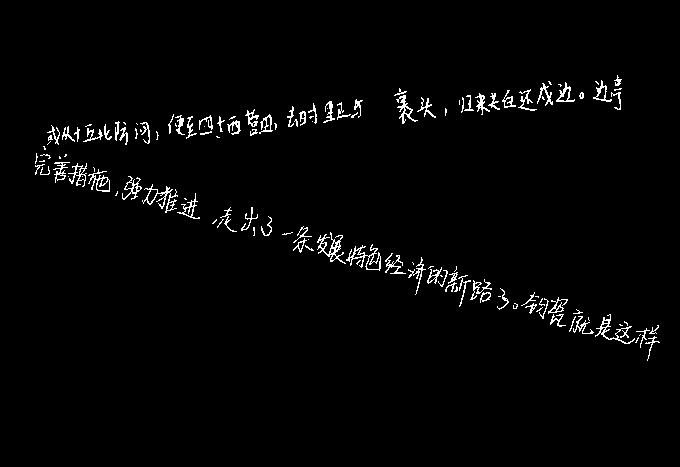 或从十五北防河，便至四十西营田，去时里正与裹头，归来头白还戍边。边亭
完善措施，强力推进，走出了一条发展特色经济的新路子。钧瓷就是这样